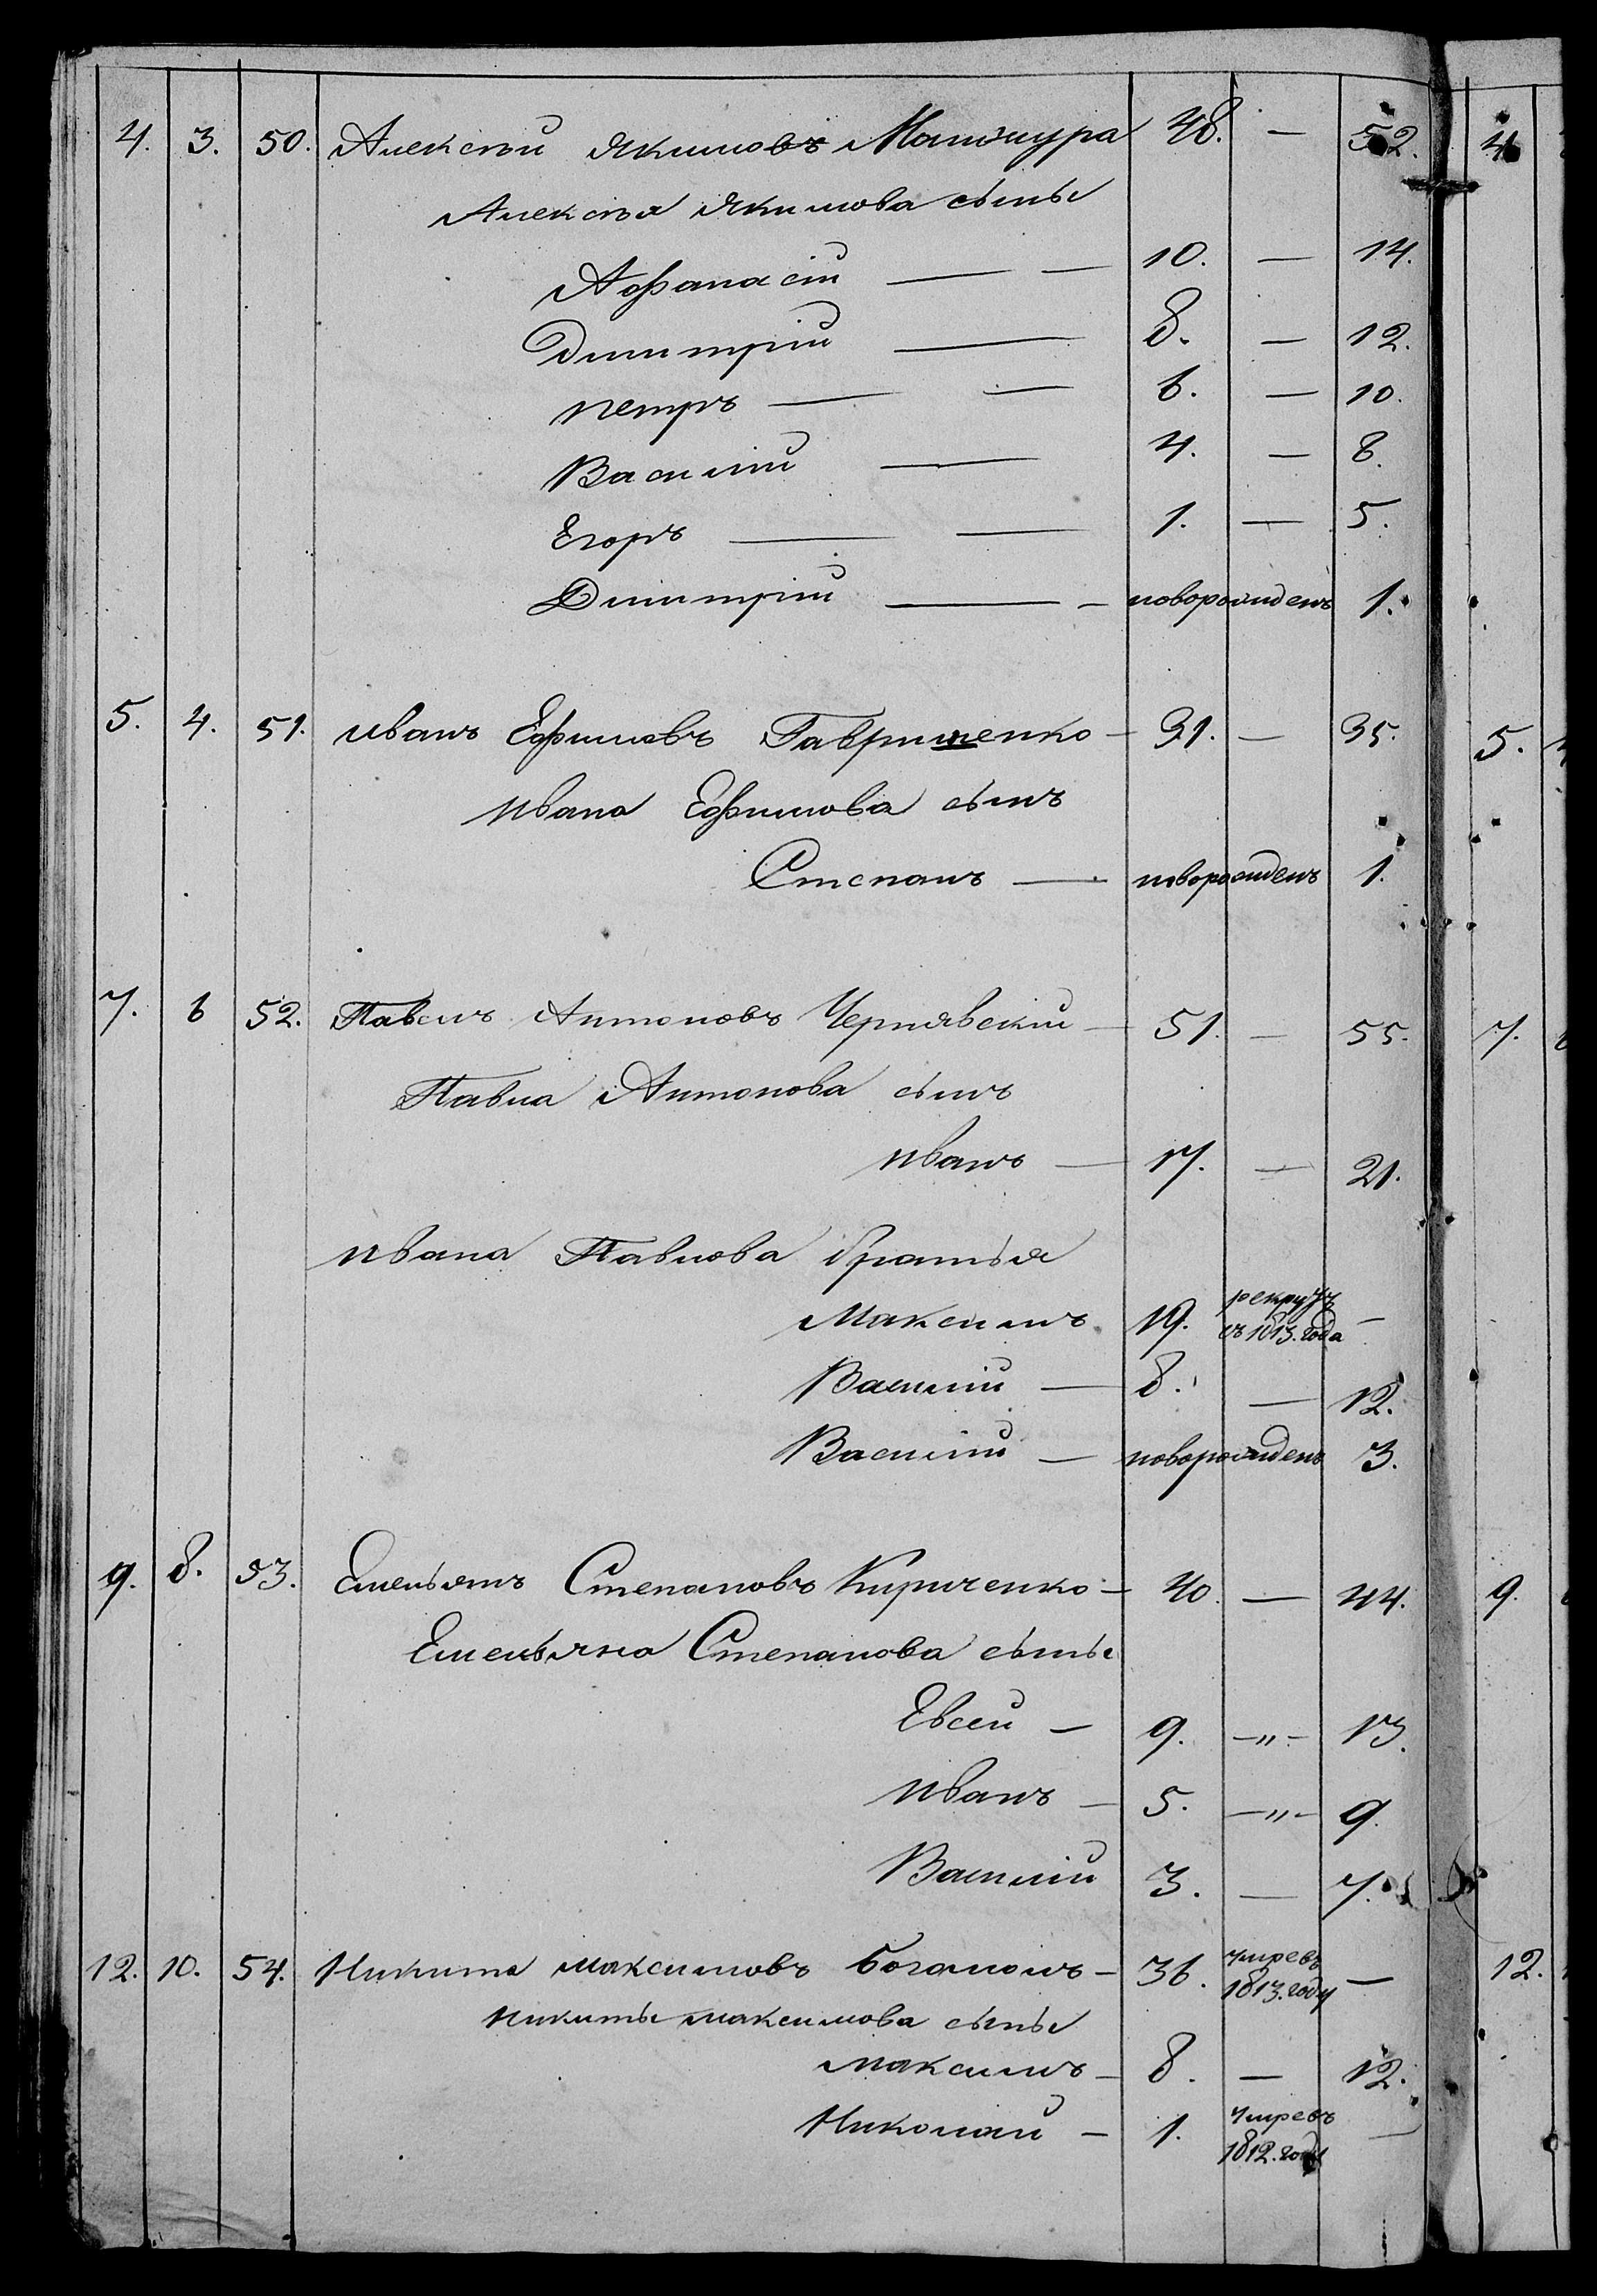 4. 3. 50. Алексѣй Якимовъ 48. — 52.
Алексѣя Якимова сыны
Афанасій — — 10. — 14.
Димитрій — 8. — 12.
Петръ — — 6. — 10.
Василій — 4. — 8.
Егоръ — — 1. — 5.
Димитрій — - новорожденъ 1.
5. 4. 51. Иванъ Ефимовъ Гавриленко - 31. — 35.
Ивана Ефимова сынъ
Степанъ — новорожденъ 1.
7. 6 52. Павелъ Антоновъ Чернявскій - 51. — 55.
Павла Антонова сынъ
Иванъ — 17. — 21.
Ивана Павлова братья
Максимъ 19. рекрутъ
съ 1813. года —
Василій — 8. — 12.
Василій — новорожденъ 3.
9. 8. 53. Емельянъ Степановъ Кириченко - 40. — 44.
Емельяна Степанова сыны
Евсей — 9. -„- 13.
Иванъ — 5. -„- 9.
Василій 3. — 7.
12. 10. 54. Никита Максимовъ Богомолъ - 36. умре въ
1813. году —
Никиты Максимова сыны
Максимъ - 8. — 12.
Николай - 1. умре въ
1812. году —
4
5.
7. 6
9.
12.